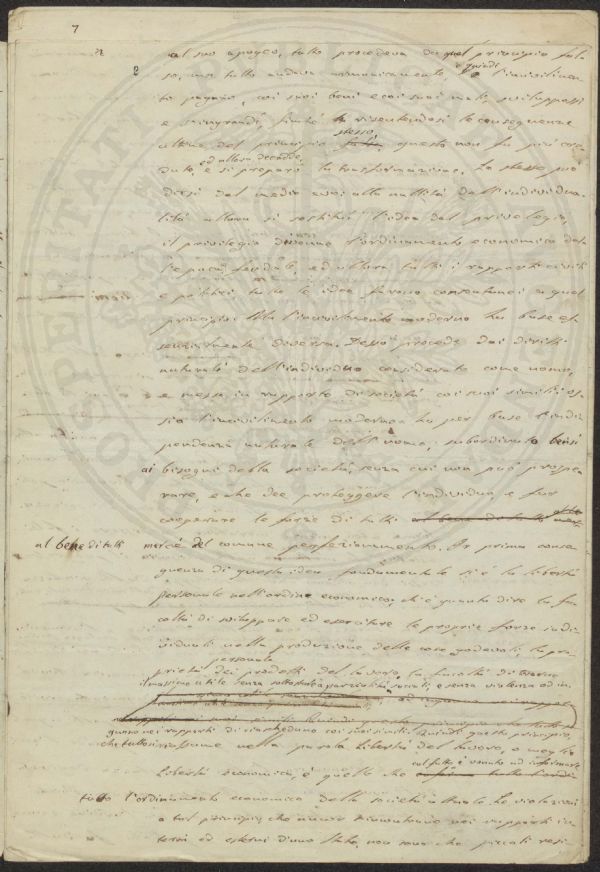 7
al suo apogeo, tutto procedeva da quel principio fal-
so, ma tutto andava armonicamente, e quindi l'incivilimen-
to pagano, coi suoi beni e coi suoi mali, sviluppossi
e s'ingrandì, finché risentendosi le conseguenze
ultime del principio stesso, questo non fu più cre-
duto, ed allora decadde, e si preparò la trasformazione. Lo stesso può
dirsi del medio evo: alla nullità dell'individua-
lità allora si sostituì l'idea del privilegio,
il privilegio divenne l'ordinamento economico del-
l'epoca feudale, ed allora tutti i rapporti civili
e politici, tutte le idee furono consentanei a quel
principio. Ma l'incivilimento moderno ha base es-
senzialmente diversa. Desso procede dai diritti
naturali dell'individuo considerato come uomo,
e messo in rapporto di società coi suoi simili; os-
sia l'incivilimento moderno ha per base l'indi-
pendenza naturale dell'uomo, subordinato bensì
ai bisogni della società, senza cui non può prospe-
rare, e che dee proteggere l'individuo, e far
cooperare le forze di tutti al bene di tutti
al bene di tutti mercé del comune perfezionamento. Or prima conse-
guenza di questa idea fondamentale si è la libertà
personale nell'ordine economico, ch'è quanto dire la fa-
coltà di sviluppare ed esercitare le proprie forze indi-
viduali nella produzione delle cose godevoli, la pro-
prietà personale dei prodotti del lavoro, la facoltà di trarne
il massimo utile senza sottostare a parzialità sociali, e senza violenza od in-
ganno nei rapporti di ciascheduno coi suoi simili. Quindi questo principio,
che tutto si riassume nella parola libertà del lavoro, o meglio
libertà economica, è quello che col fatto è venuto ad informare
tutto l'ordinamento economico della società attuale. Le violazioni
a tal principio, che ancor rinvontrano nei rapporti in-
terni ed esterni d'uno Stato, non sono che piccoli resi-